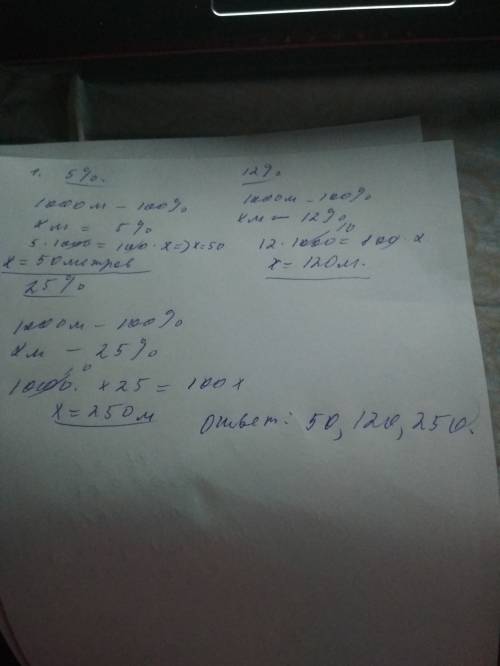 1. 5%.
1000м - 100%
хм = 5%
5 · 1000 = 100 · х => х=50
х = 50 метров
12%
1000м - 100%
хм - 12%
10
12 · 1000 = 100 · х
х = 120м.
25%
1000м - 100%
хм - 25%
0
1000. х25 = 100х
х = 250м
Ответ: 50, 120, 250.